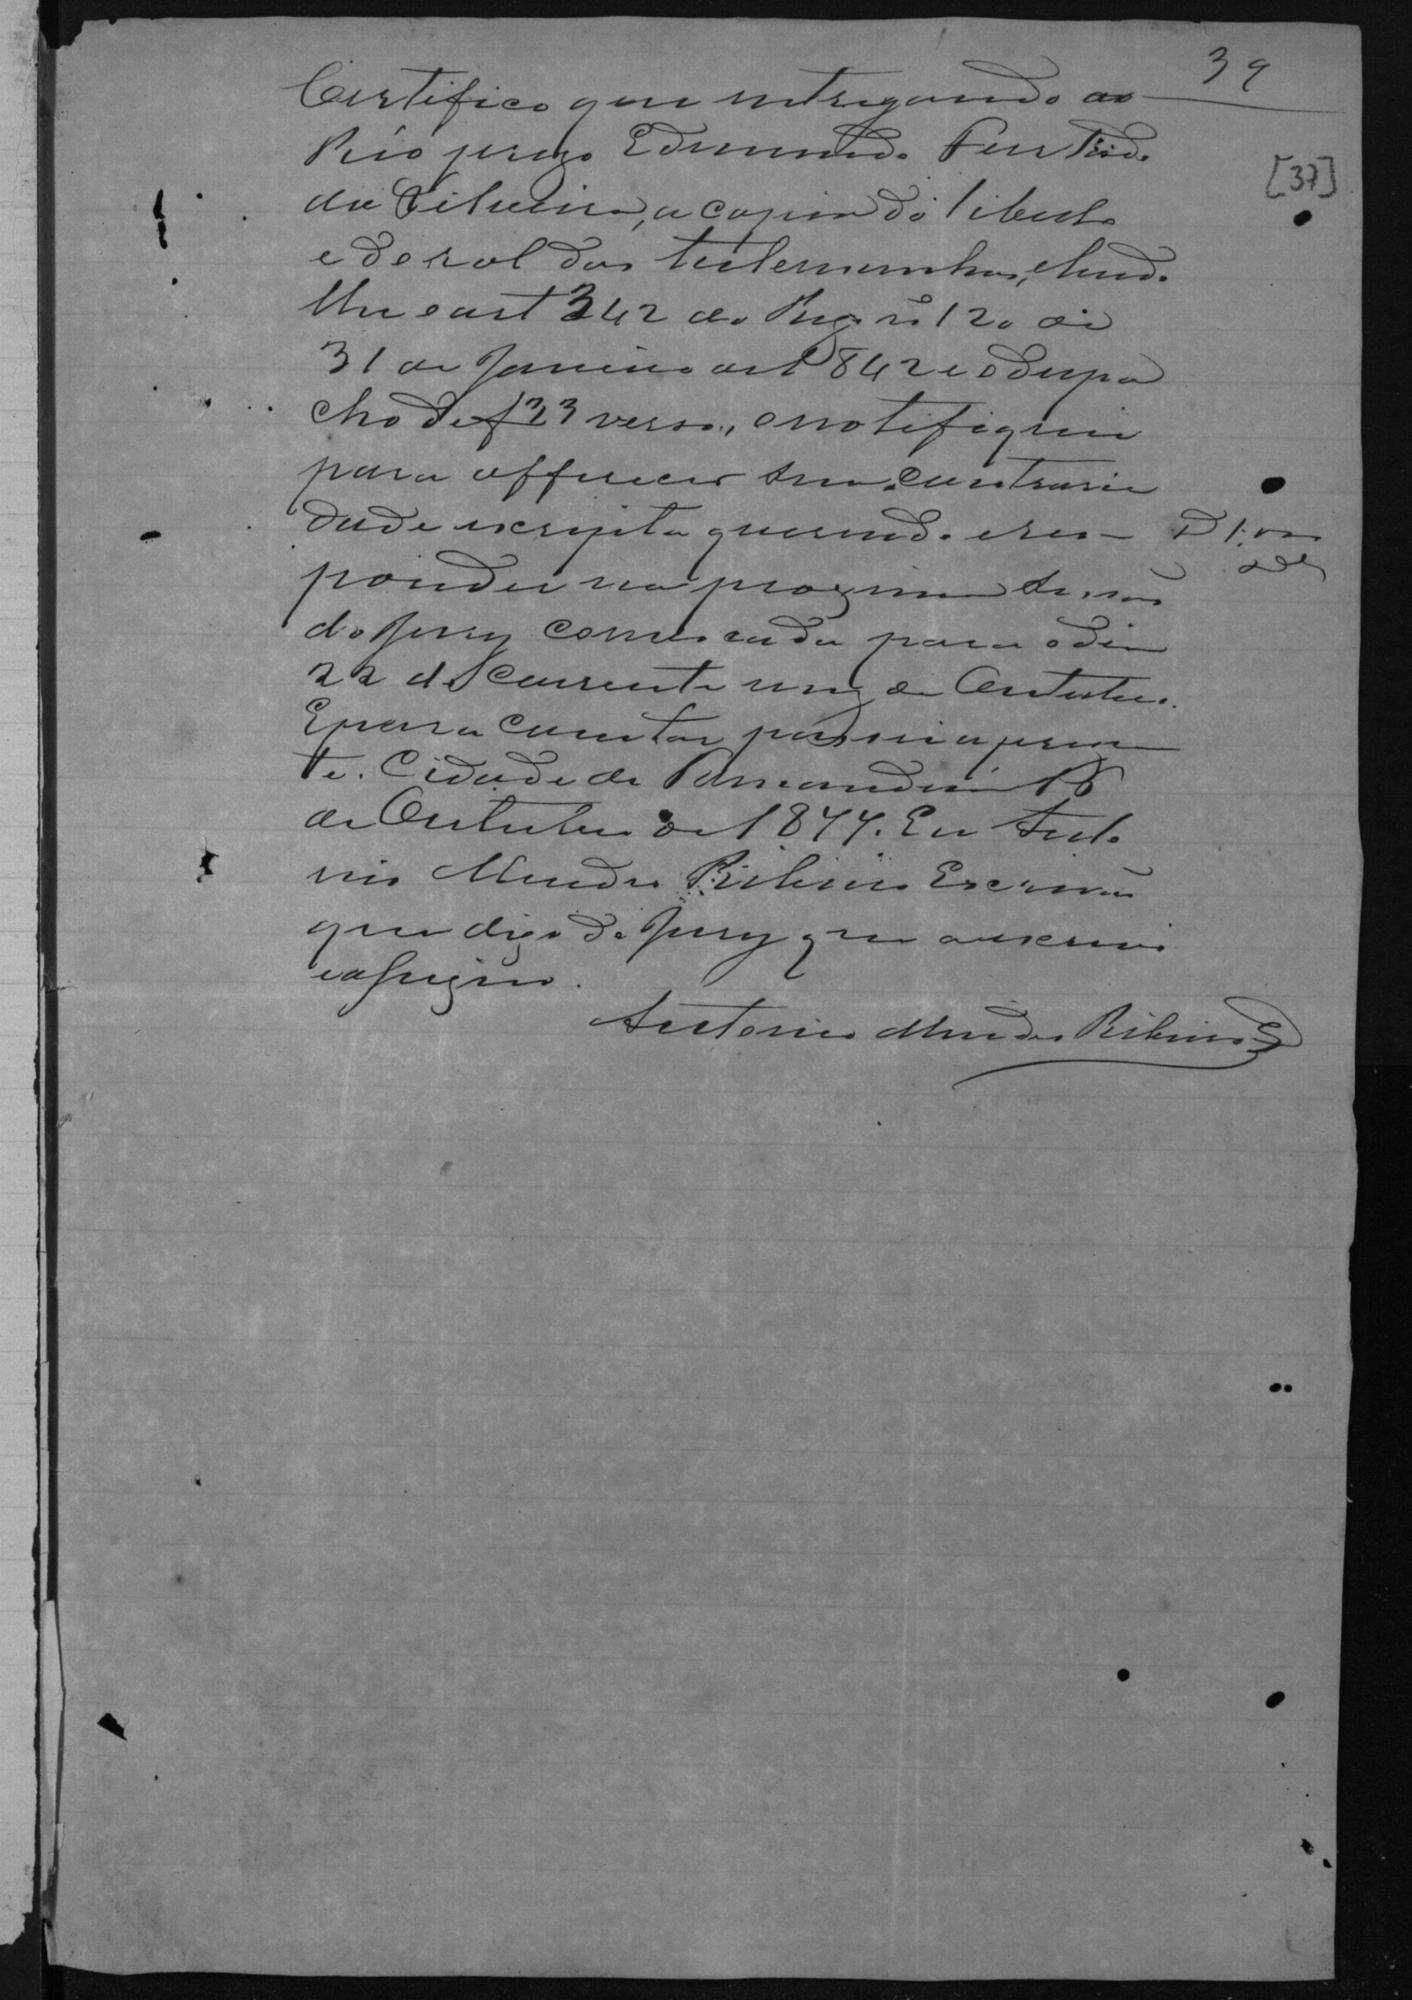 39
[37]
Certifico que entregando ao
Réo preso Edmundo Furtado
da Silveira, a copia do libello
e do rol das testemunhas, lendo
lhe o art 342 do Reg nº 120 de
31 de Janeiro de 1842 e o despa
cho de f 33 verso, o notifiquei
para offerecer sua contrarie
dade escripta querendo e res-
ponder na proxima sessão
do Jury convocada para o dia
22 do corrente mez de Outubro.
E para constar passei a presen
te. Cidade de
de Outubro de 1877. Eu Anto
nio Mendes Ribeiro Escrivão
que digo do Jury que o escrevi
e assigno.
Antonio Mendes Ribeiro